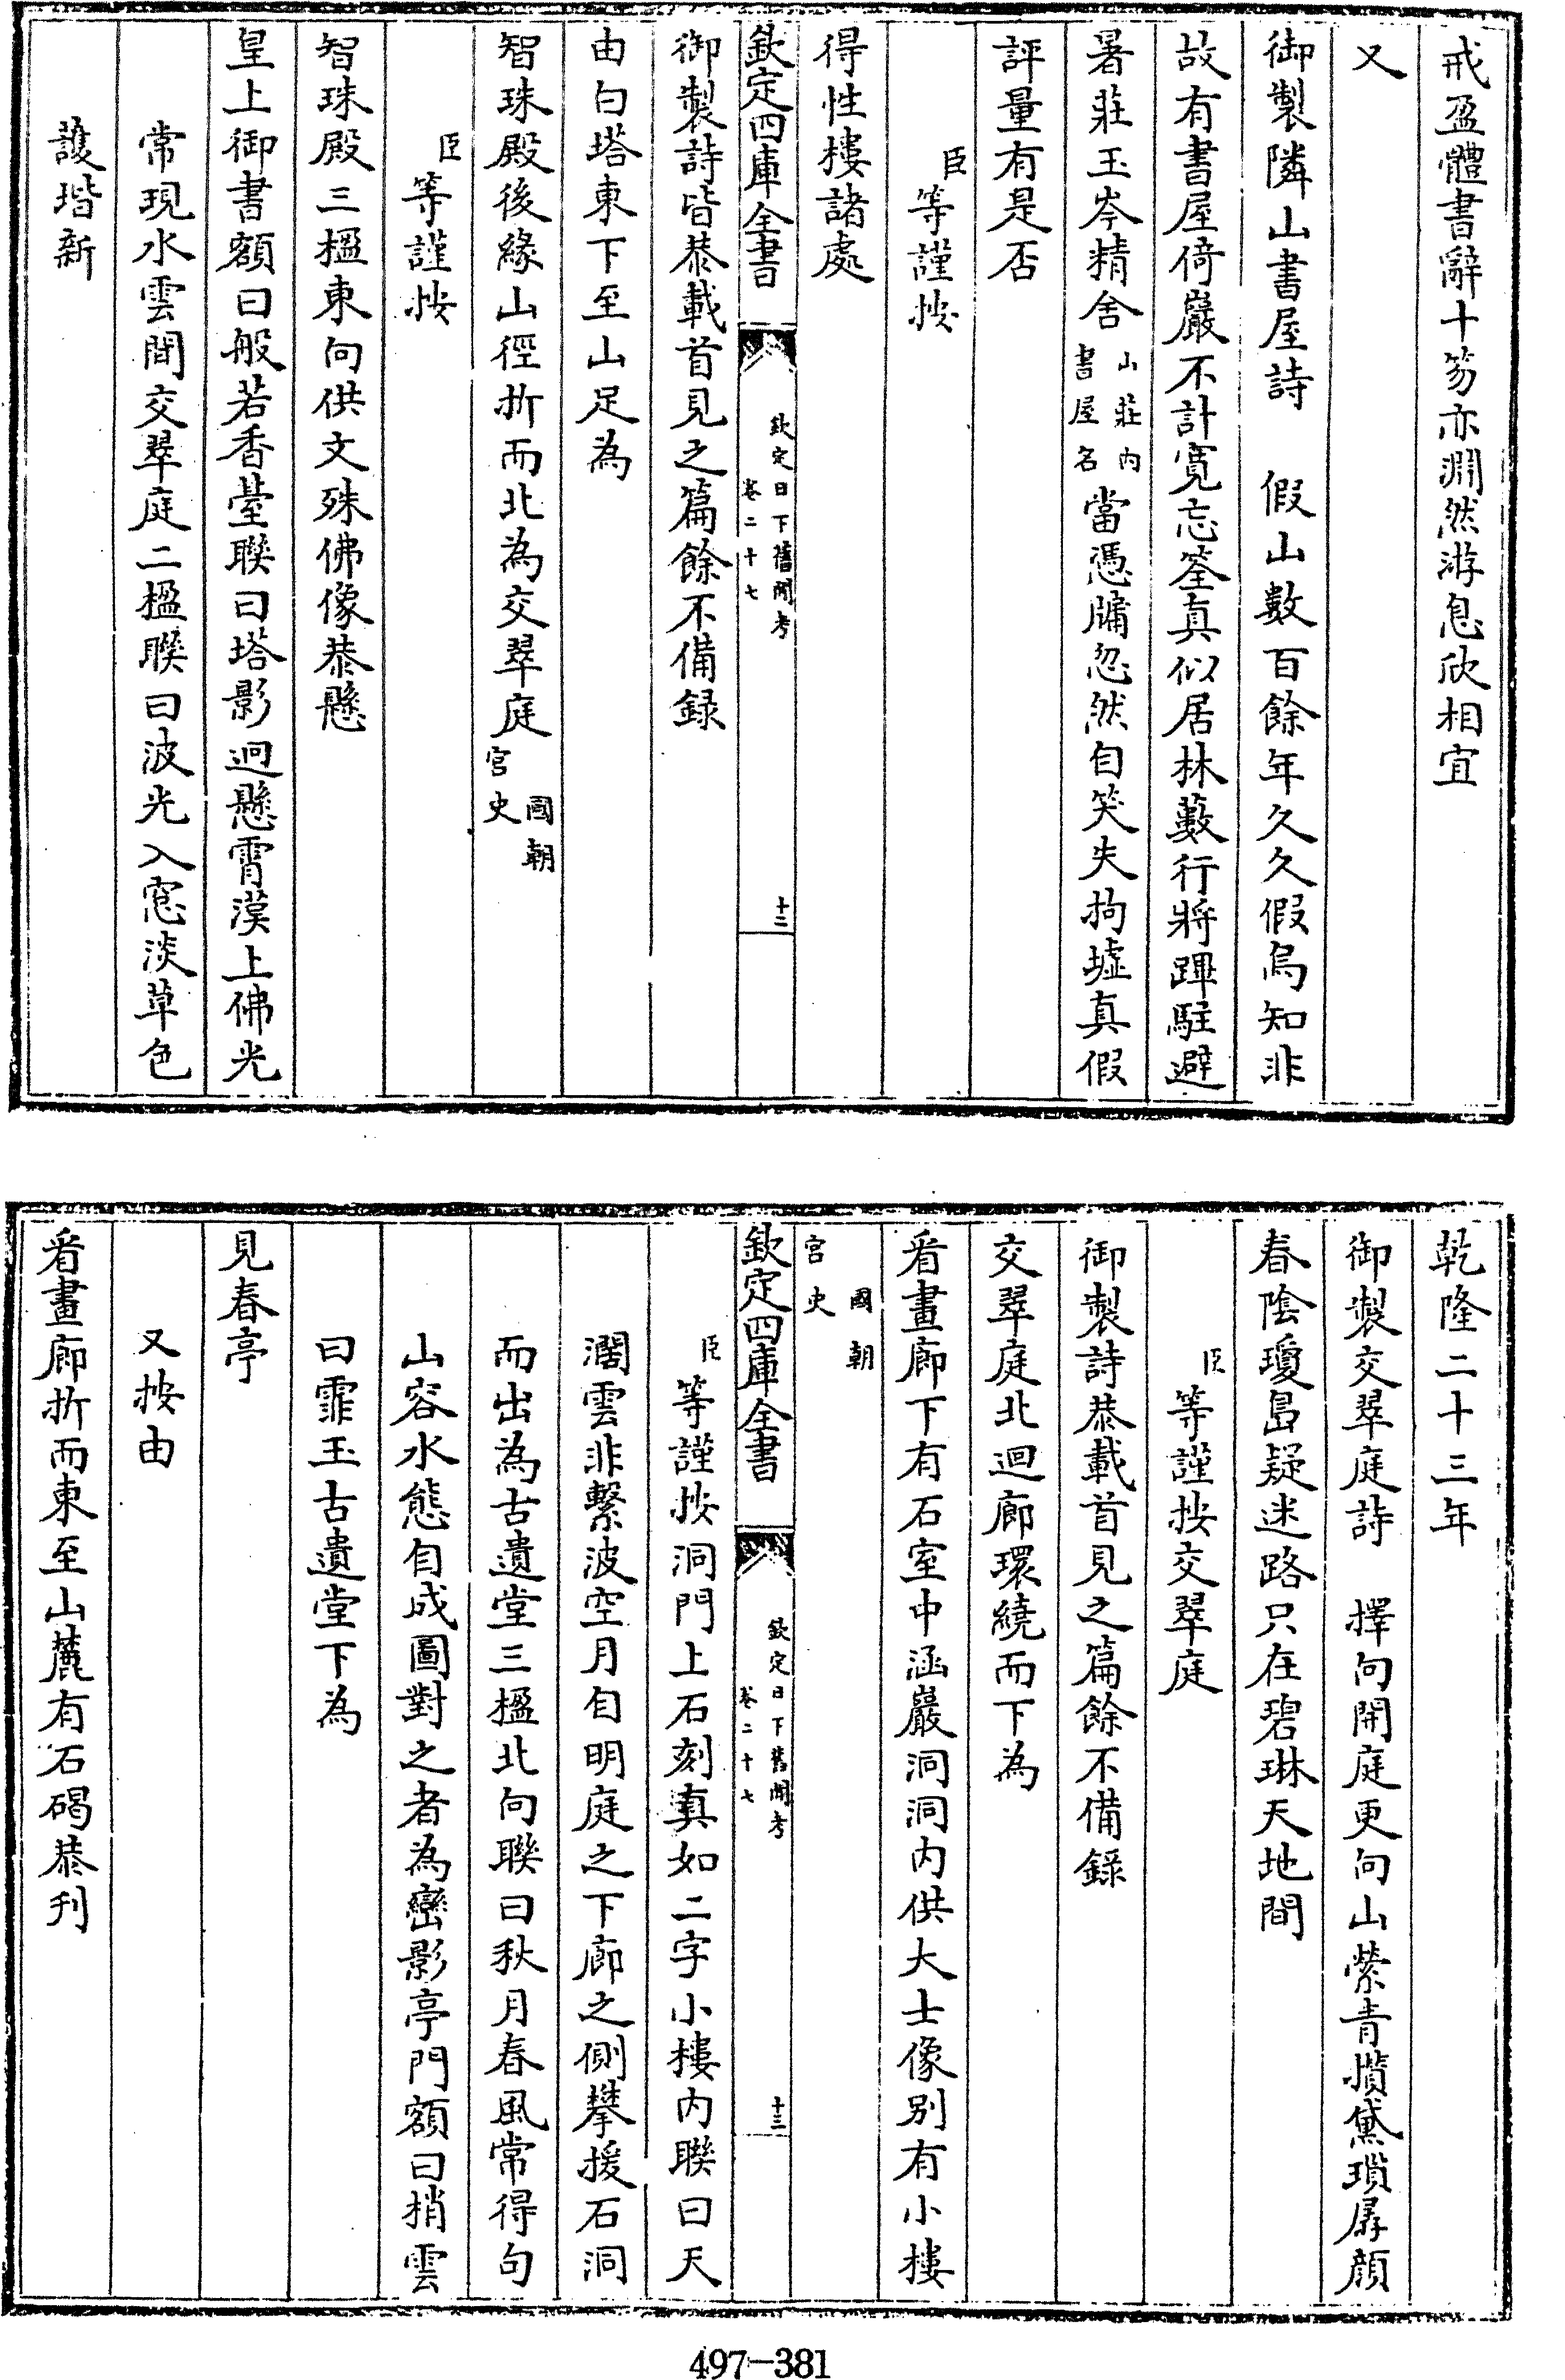 戒盈體書辭十笏亦淵然游息欣相宜
又
御製隣山書屋詩　假山數百餘年久久假烏知非
故有書屋倚巖不計寛忘筌真似居林藪行將蹕駐避
暑莊玉岑精舍山莊内書屋名當憑牖忽然自笑失拘墟真假
評量有是否
臣等謹按
得性樓諸處
欽定四庫全書　欽定日下舊聞考卷二十七　十二
御製詩皆恭載首見之篇餘不備録
由白塔東下至山足為
智珠殿後緣山徑折而北為交翠庭國朝宫史
臣等謹按
智珠殿三楹東向供文殊佛像恭懸
皇上御書額曰般若香臺聯曰塔影迥懸霄漢上佛光
常現水雲間交翠庭二楹聯曰波光入窻淡草色
護堦新
乾隆二十三年
御製交翠庭詩　擇向開庭更向山縈青攢黛瑣孱顔
春陰瓊島疑迷路只在碧琳天地間
臣等謹按交翠庭
御製詩恭載首見之篇餘不備錄
交翠庭北迴廊環繞而下為
看畫廊下有石室中涵巖洞洞内供大士像别有小樓
國朝宫史
欽定四庫全書　欽定日下舊聞考卷二十七　十三
臣等謹按洞門上石刻真如二字小樓内聯曰天
濶雲非繫波空月自明庭之下廊之側攀援石洞
而出為古遺堂三楹北向聯曰秋月春風常得句
山容水態自成圖對之者為巒影亭門額曰梢雲
曰霏玉古遺堂下為
見春亭
又按由
看畫廊折而東至山麓有石碣恭刋
497-381